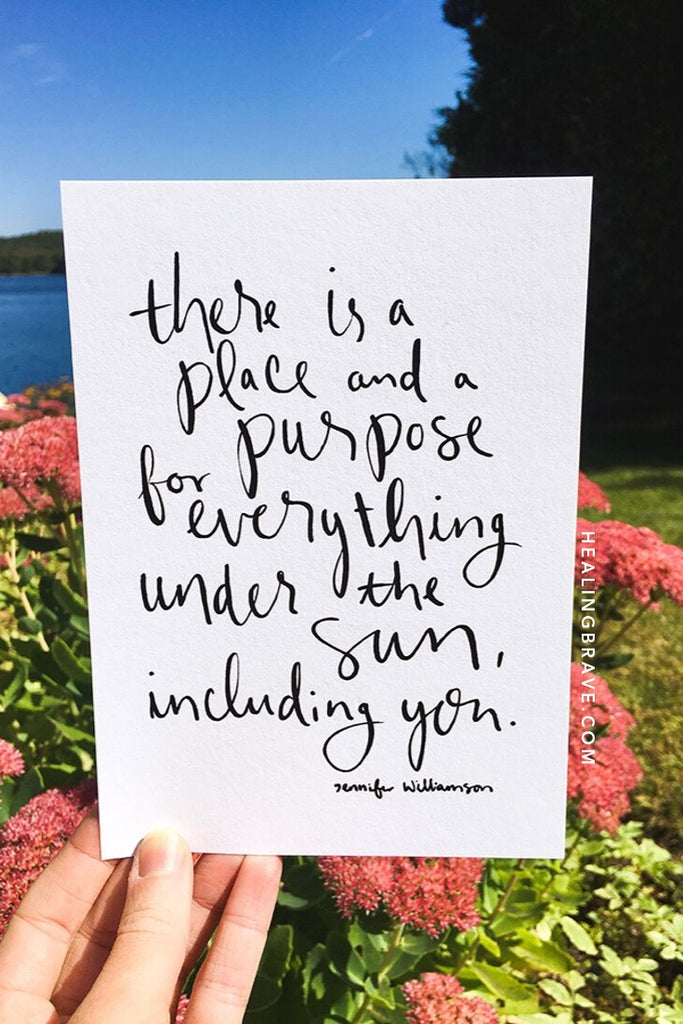 there is a
place and a
purpose
for
everything
under the
sun,
including you.
Jennifer Williamson
HEALINGBRAVE.COM